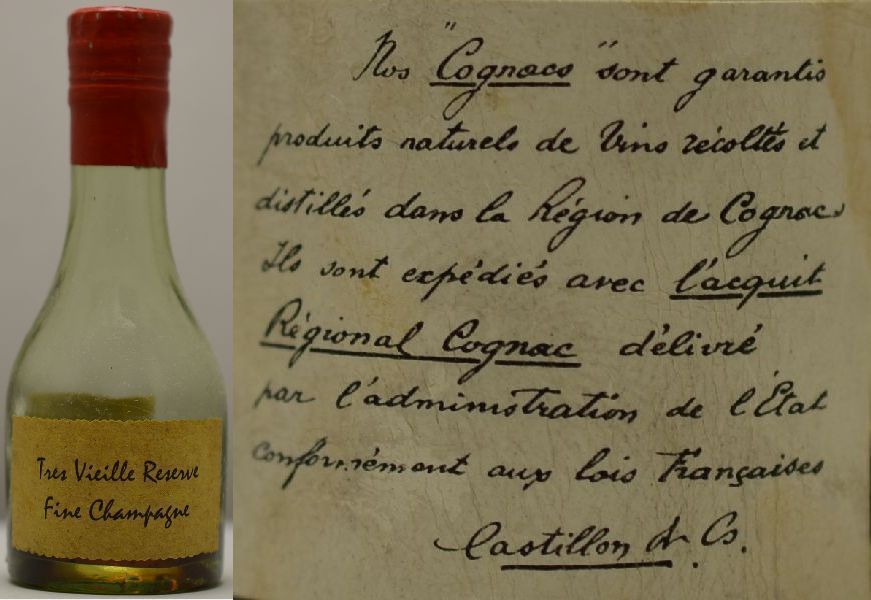 Tres Vieille Reserve
Fine Champagne
Nos "Cognacs" sont garantis
produits naturels de Vins récoltés et
distillés dans la Région de Cognac.
Ils sont expédiés avec l'acquit
Régional Cognac délivré
par l'administration de l'État
conformément aux lois Françaises
Castillon & Co.